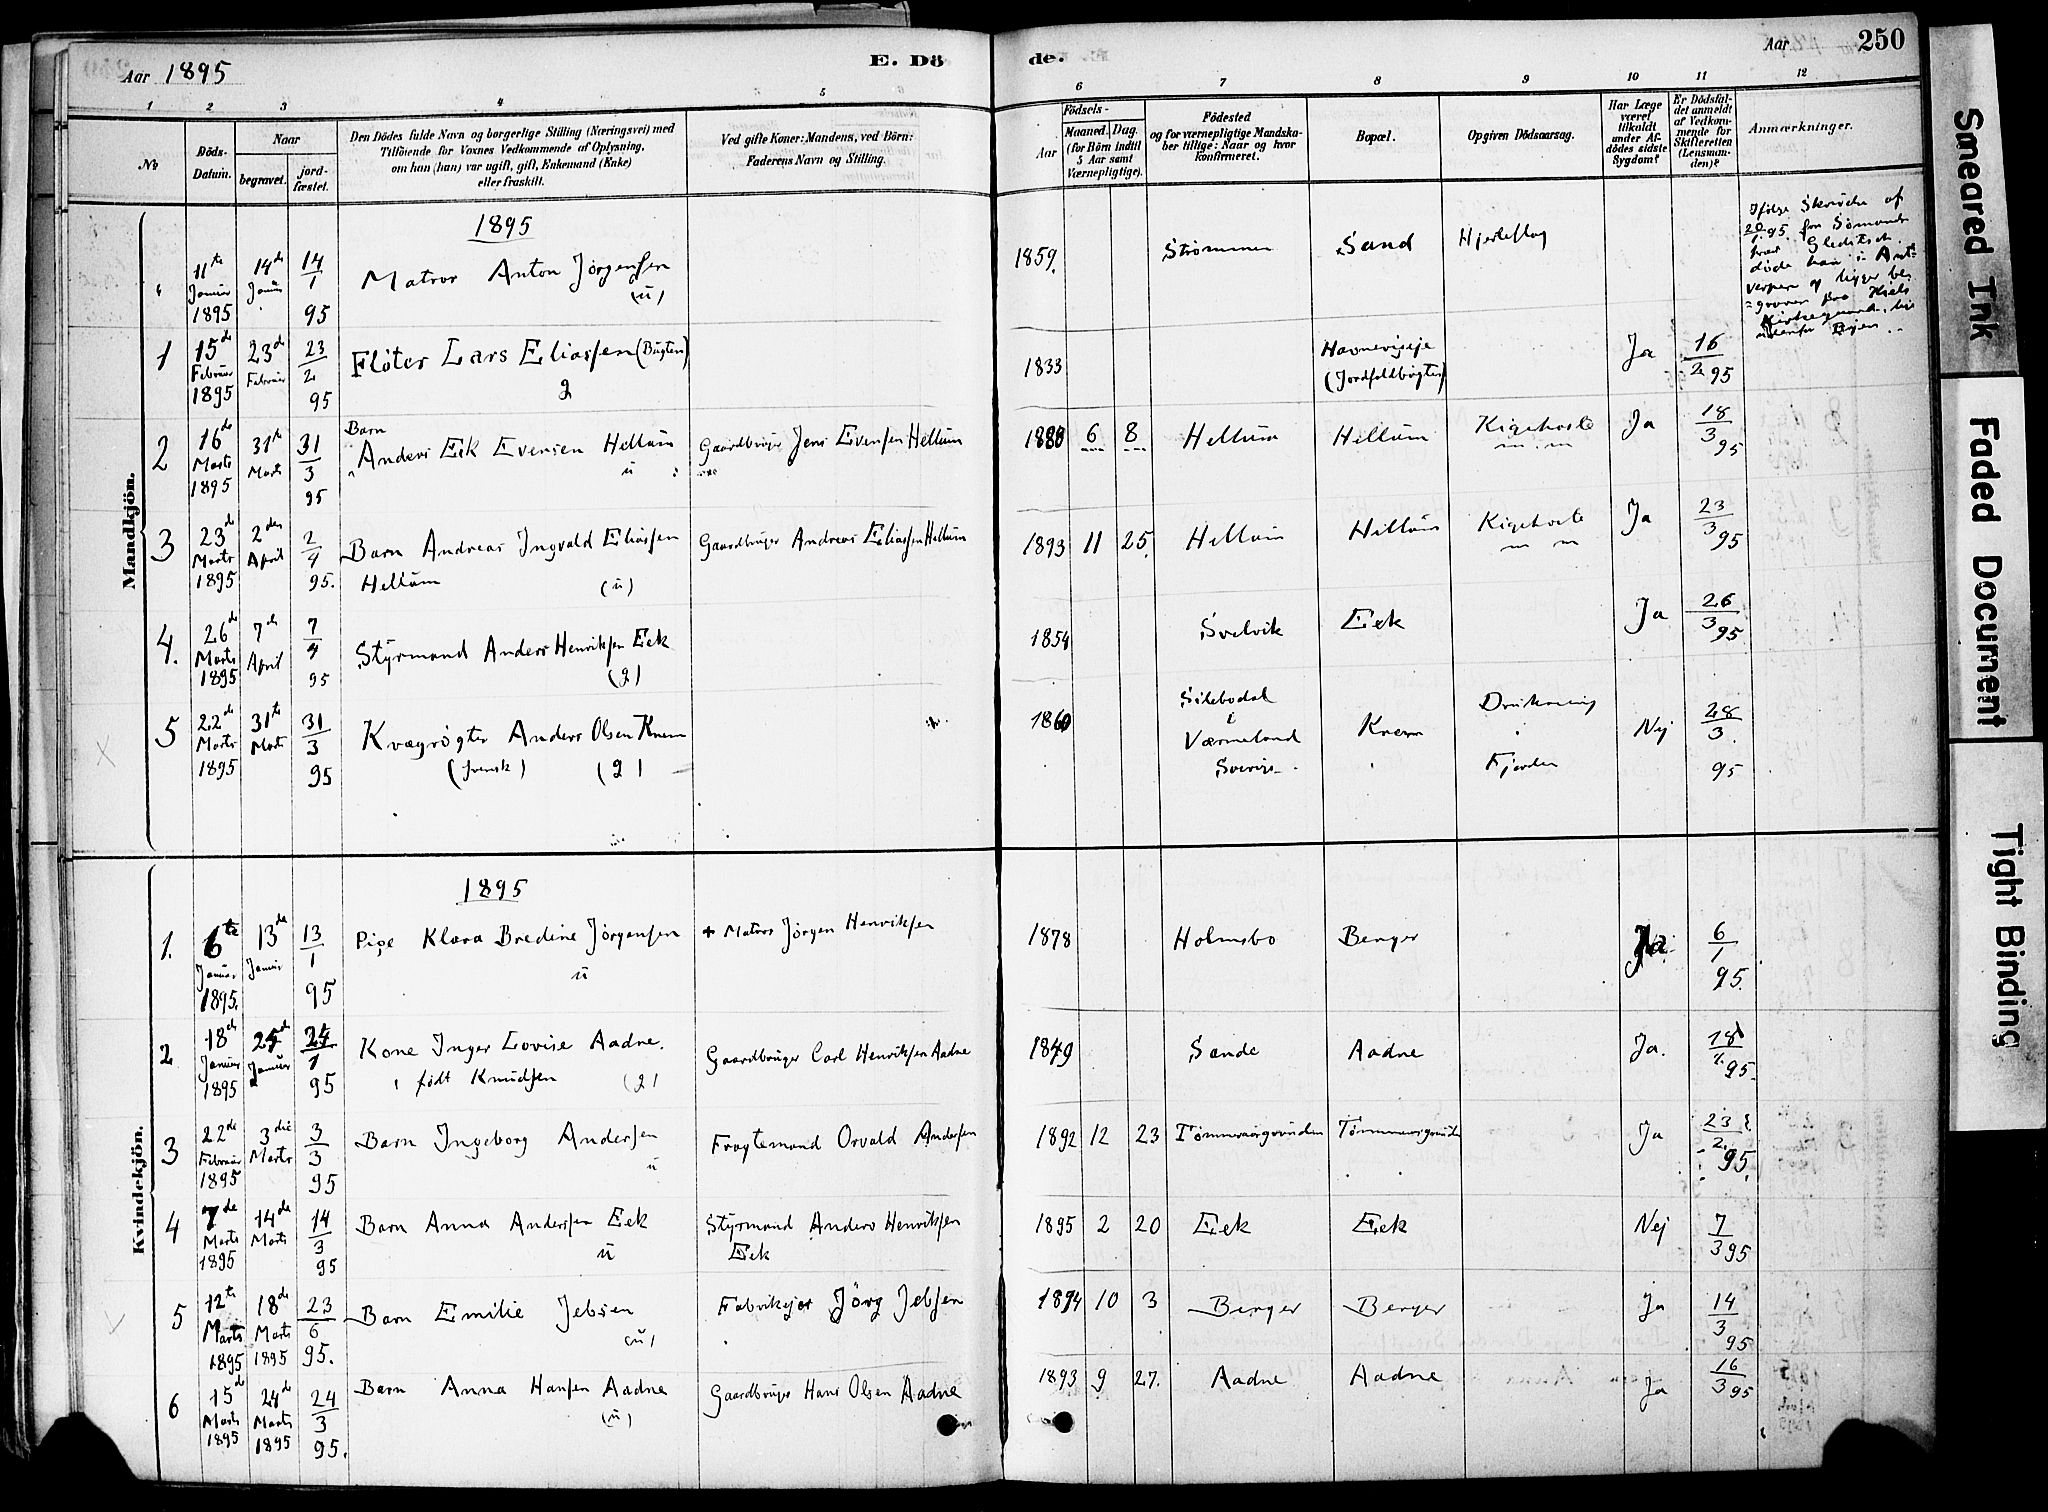 Aar 1895
E. Dö
de.
Aar
250
1 2 3 4 5 6 7 8 9 10 11 12
No
Döds-
Datum.
Naar
begravet.
jord-
fæstet.
Den Dödes fulde Navn og borgerlige Stilling (Næringsvei) med
Tilföiende for Voxnes Vedkommende af Oplysning,
om han (hun) var ugift, gift, Enkemand (Enke)
eller fraskilt.
Ved gifte Koner: Mandens, ved Börn:
Faderens Navn og Stilling.
Födsels-
Aar
Maaned. Dag.
(for Börn indtil
5 Aar samt
Værnepligtige).
Födested
og for værnepligtige Mandska-
ber tillige: Naar og hvor
konfirmeret.
Bopæl.
Opgiven Dödsaarsag.
Har Læge
været
tilkaldt
under Af-
dödes sidste
Sygdom?
Er Dödsfal-
det anmeldt
af Vedkom-
mende for
Skifteretten
(Lensman-
den)?
Anmærkninger.
Mandkjön.
1895
11te Januar 1895 14de Januar 14/1 95 Matros Anton Jörgensen (u) 1859. Strømmen Sand Hjerteslag
Ifølge Skrivelse af
20/1 95 fra Sømands
præst Gleditsch
døde han i Ant-
verpen og ligger be-
graven paa Kiels
Kirkegaard,
udenfor Byen.
1 15de Februar 1895 23de Februar 23/2 95 Flöter Lars Eliassen (Bugten) g 1833 Havnevigeie (Jordfaldbugten) Ja 16/2 95
2 16de Marts 1895 31te Marts 31/3 95 Barn Anders Eek Evensen Hellum u Gaardbruger Jens Evensen Hellum 1888 6 8 Hellum Hellum Kigehoste m. m Ja 18/3 95
3 23de Marts 1895 2den April 2/4 95. Barn Andreas Ingvald Eliassen Hellum (u) Gaardbruger Andreas Eliassen Hellum 1893 11 25. Hellum Hellum Kigehoste m m Ja 23/3 95
4. 26de Marts 1895 7de April 7/4 95 Styrmand Anders Henriksen Eek (g) 1854 Svelvik Eek Ja 26/3 95
5 22de Marts 1895 31te Marts 31/3 95 Kvægrögter Anders Olsen Knem (svensk) (g) 1860 Silebodal i Værmeland Sverige Knem Drukning i Fjorden Nej 28/3 95
Kvindekjön.
1895
1. 6te Januar 1895. 13de Januar 13/1 95 Pige Klara Bredine Jörgensen u + Matros Jörgen Henriksen 1878 Holmsbo Berger Ja 6/1 95.
2 18de Januar 1895 24de Januar 24/1 95 Kone Inger Lovise Aadne. født Knudsen (g) Gaardbruger Carl Henriksen Aadne 1849 Sande Aadne Ja. 18/1 95.
3 22de Februar 1895 3die Marts 3/3 95 Barn Ingeborg Andersen u Fragtemand Orvald Andersen 1892 12 23 Tømmeraasgrunden Tømmeraasgrunden Ja 23/2 95.
4 7de Marts 1895 14de Marts 14/3 95 Barn Anna Andersen Eek u Styrmand Anders Henriksen Eek 1895 2 20 Eek Eek Nej 7/3 95
5 12te Marts 1895 18de Marts 1895 23/6 95. Barn Emilie Jebsen (u) Fabrikejer Jörg Jebsen 1894 10 3 Berger Berger Ja 14/3 95
6 15de Marts 1895 24de Marts 1895 24/3 95. Barn Anna Hansen Aadne (u) Gaardbruger Hans Olsen Aadne 1893 9 27. Aadne Aadne Ja 16/3 95
Smeared Ink
Faded Document
Tight Binding